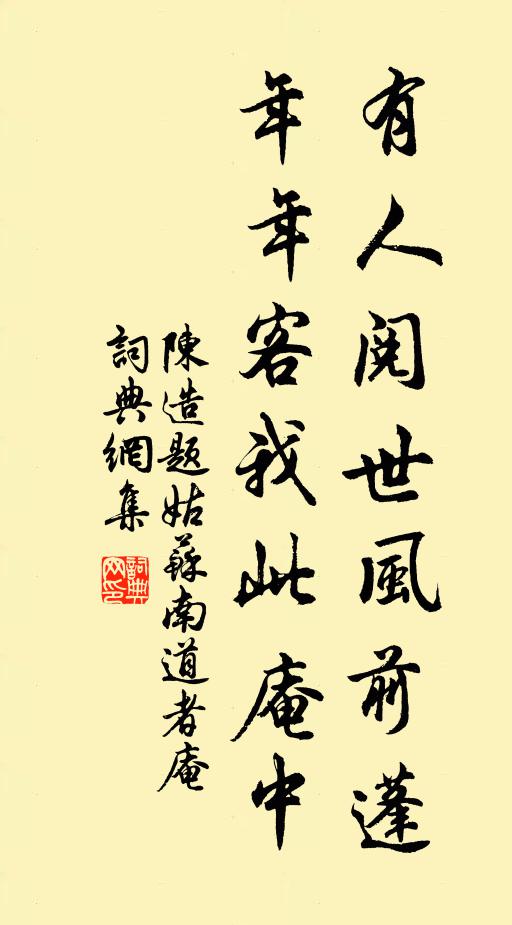 有人閱世風前蓬
年年客我此庵中
陳造題姑蘇南道者庵
詞典網集
詞典網印